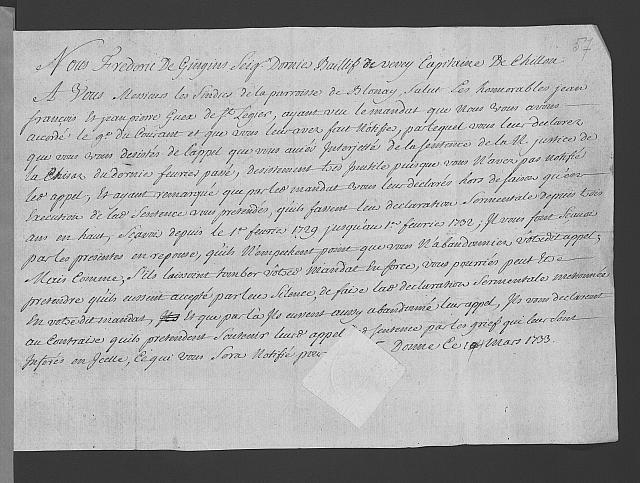 57
Nous Frederic De Gingins Seigr. Dornie Baillif de vevey Capitaine De Chillon
A Vous Messieurs les Sindics de la parroisse de Blonay, Salut Les honnorables jean
françois et jean pierre Guex de St. Legier, ayant veu le mandat que Nous vous avons
accordé le 9e. du Courant et que vous leur avez fait Notifié, par lequel vous leur declarez
que vous vous desistés de l'appel que vous aviés Interjetté de la Sentence de la N. justice de
la Chiesaz du dornier feuvrier passé, desistement tres Inutile puisque vous N'avez pas Notifié
led. appel, Et ayant remarqué que par led. mandat vous leur declarés hors de saison qu'en
Execution de lad. Sentence vous pretendés, quils fassent leur declaration Sermentale depuis trois
ans en haut, Scavoir depuis le 1er. feuvrie 1729 jusqu'au 1er. feuvrie 1732, Il vous font Scavoir
par les presentes en reponse, quils N'empechent point que vous N'abandonniez votre dit appel,
Mais Comme, S'ils laissoint tomber votre d. Mandat En force, vous pourriés peut Etre
pretendre qu'ils eussent accepté par leur Silence, de faire lad. declaration Sermentale mentionnée
En votre dit mandat, Et que par là Ils eussent aussy abandonné leur appel, Ils vous declairent
au Contraire quils pretendent Soutenir leur d. appel de Sentence par les griefs qui leur Sont
Inferés en Icelle, Ce qui vous Sera Notifié pour Donné Ce Mars 1733.